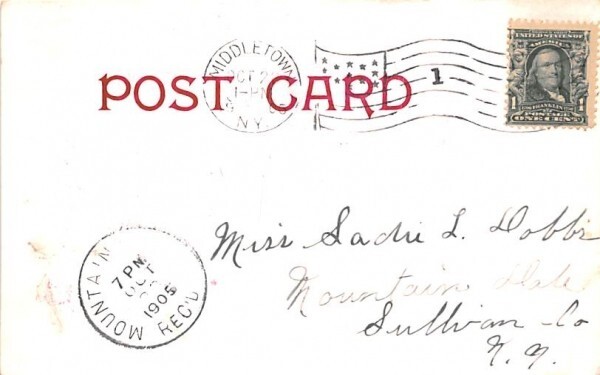 MIDDLETOWN
OCT 2
1-PM
N.Y.
1
UNITED STATES OF AMERICA
1 FRANKLIN 1
POSTAGE
ONE CENT
POST CARD
Miss Sadie L. Dobbs
Mountain Dale
Sullivan Co
N. Y.
MOUNTAIN
7 PM
OCT
1905
REC'D